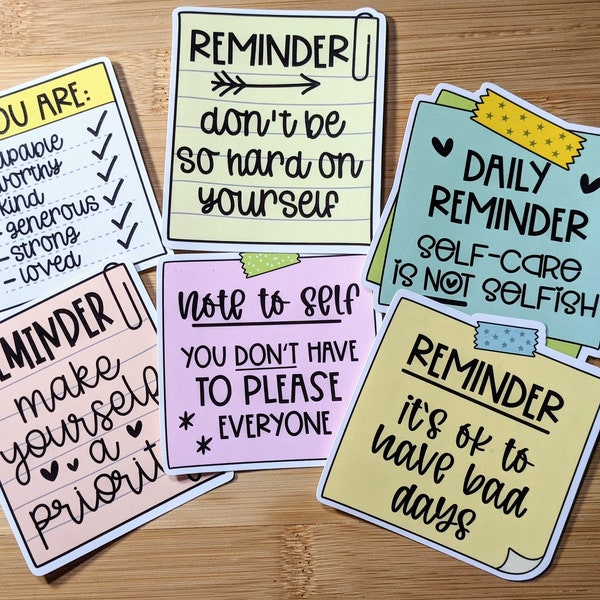 OU ARE:
apable
worthy
kind
- generous
-strong
-loved
REMINDER
don't be
so hard on
yourself
DAILY
REMINDER
SELF-CARE
iS NOT SELFISH
EMINDER
make
yourself
a
priorit
note to self
YOU DON'T HAVE
TO PLEASE
EVERYONE
REMINDER
it's ok to
have bad
days